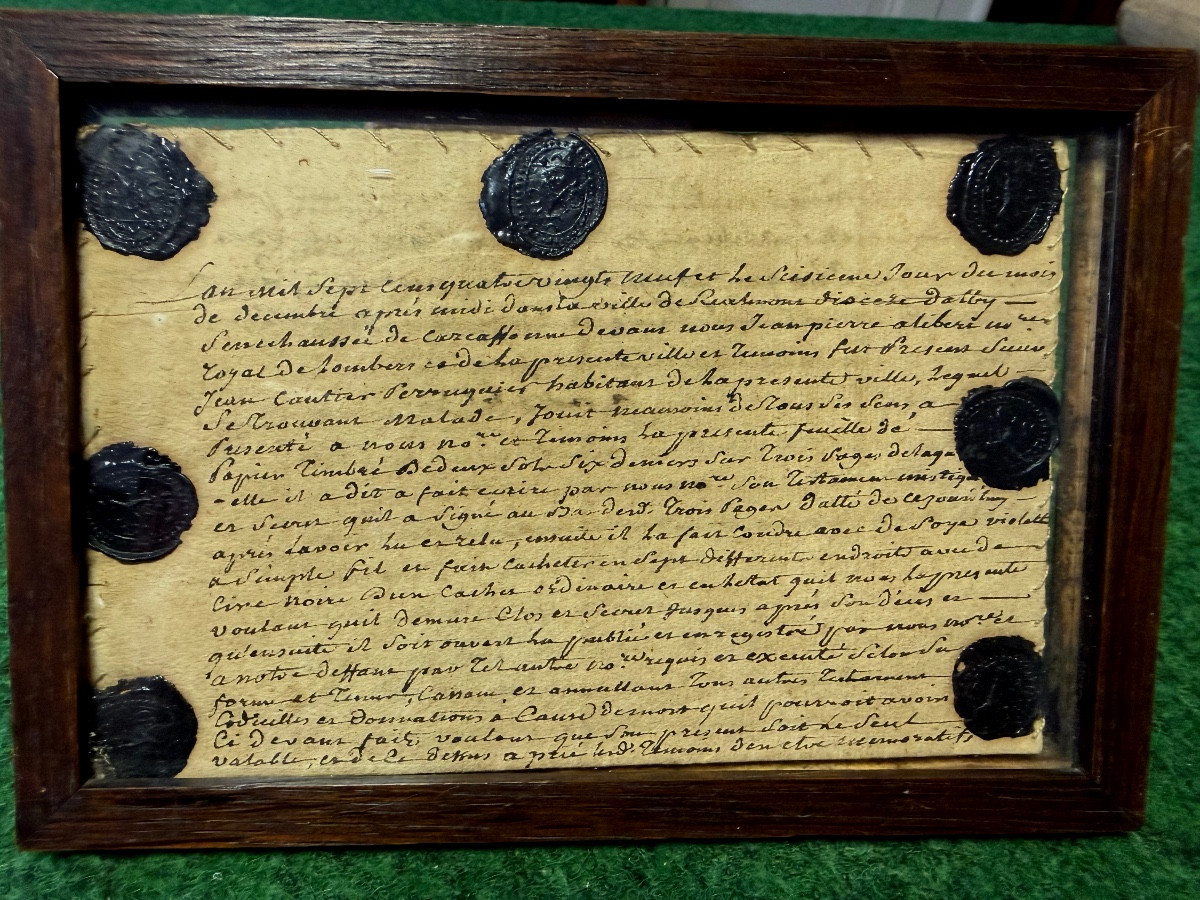 Lan mil Sept Cens quatre vingts neuf et le Seisieme Jour du mois
de decembre aprés midi dans la ville de Realmont dioceze dalby
Senechaussée de Carcassonne devant nous Jean pierre aliberi no.re
royal de Lombers de la presente ville et temoins fut Present Sieur
Jean Cautier Perruquier habitant de la presente ville, Lequel
Se trouvant Malade, Jouit neamoins de tous Ses Sens, a
Presenté a nous no.re et temoins la presente feuille de
Papier timbré de deux Sols Six deniers Sur trois Pages de laqu
-elle il a dit a fait ecrire par nous no.re Son Testament mistique
et Secret quil a Signé au bas desd. trois Pages datté de cejourdhuy
aprés Lavoir lu et relu, ensuite il la fait Coudre avec de Soye violette
a Simple fil et fait Cacheter en Sept differents endroits avec de
Cire noire dun Cachet ordinaire et en letat quil nous la presente
voulant quil demure Clos et Secret Jusques aprés Son décés et
qu'ensuite il Soit ouvert lu publié et enregistré par nous no.re et
a notre deffaut par tel autre no.re requis et executé Selon Sa
forme et teneur, Cassant et annullant tous autres testament
Codicilles et Donnations à Cause de mort quil pourroit avoir
Ci devant fait, voulant que Son present Soit le Seul
valable, et de Ce dessus a prié lesd. temoins den etre memoratifs